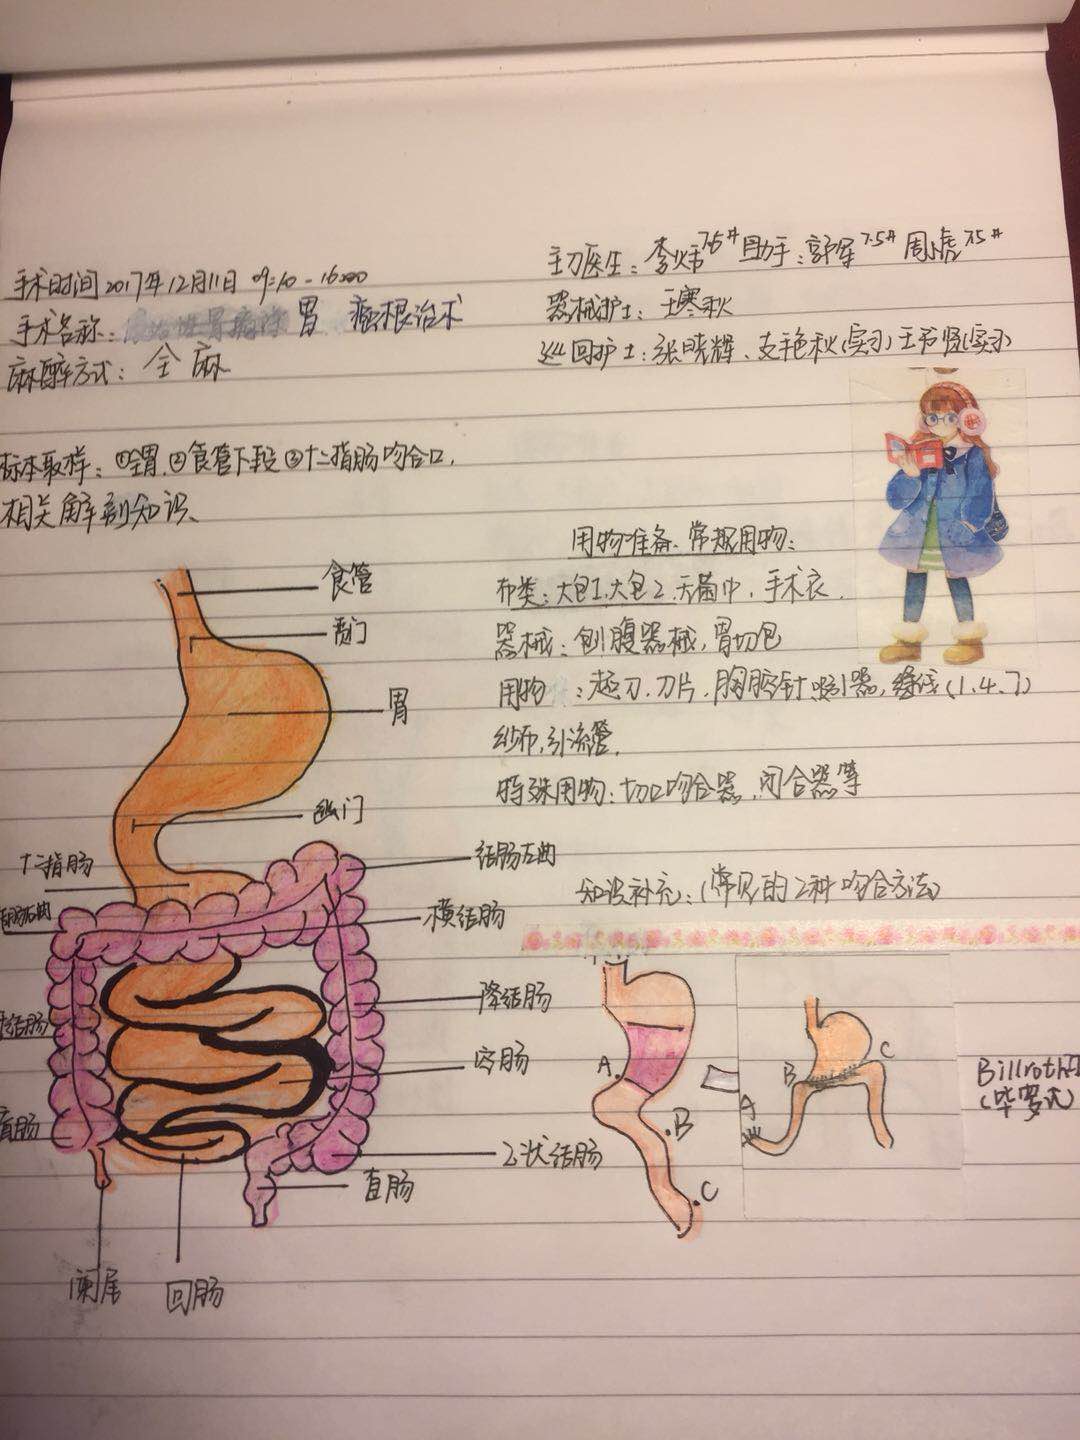 手术时间 2017年12月11日 09:10-16:00
手术名称: 胃 癌根治术
麻醉方式: 全麻
主刀医生: 李炜 7.5# 助手: 郭军 7.5# 周虎 7.5#
器械护士: 王寒秋
巡回护士: 张晓辉、支艳秋(实习) 王若贤(实习)
标本取样: ①全胃 ②食管下段 ③十二指肠吻合口.
相关解剖知识、
用物准备、常规用物:
布类: 大包1、大包2、无菌巾、手术衣.
器械: 刨腹器械, 胃切包
用物: 超刀、刀片、胸腔针、吸引器, 缘线(1、4、7)
纱布, 引流管.
特殊用物: 切口吻合器、闭合器等
知识补充: (常见的2种吻合方法)
食管
贲门
胃
幽门
十二指肠
结肠左曲
结肠右曲
横结肠
降结肠
结肠
空肠
盲肠
乙状结肠
直肠
阑尾
回肠
A.
B
C
B
C
A
Billroth
(毕罗式)